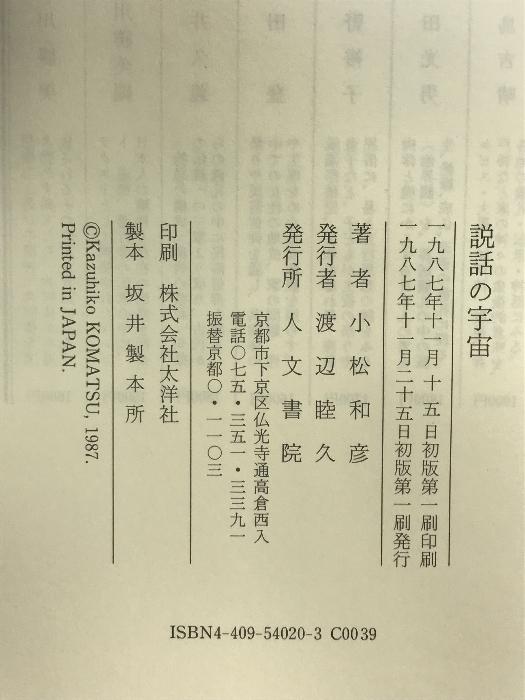 説話の宇宙
一九八七年十一月十五日初版第一刷印刷
一九八七年十一月二十五日初版第一刷発行
著者 小松和彦
発行者 渡辺睦久
発行所 人文書院
京都市下京区仏光寺通高倉西入
電話〇七五・三五一・三三九一
振替京都〇・一一〇三
印刷 株式会社太洋社
製本 坂井製本所
©Kazuhiko KOMATSU, 1987.
Printed in JAPAN.
ISBN4-409-54020-3 C0039